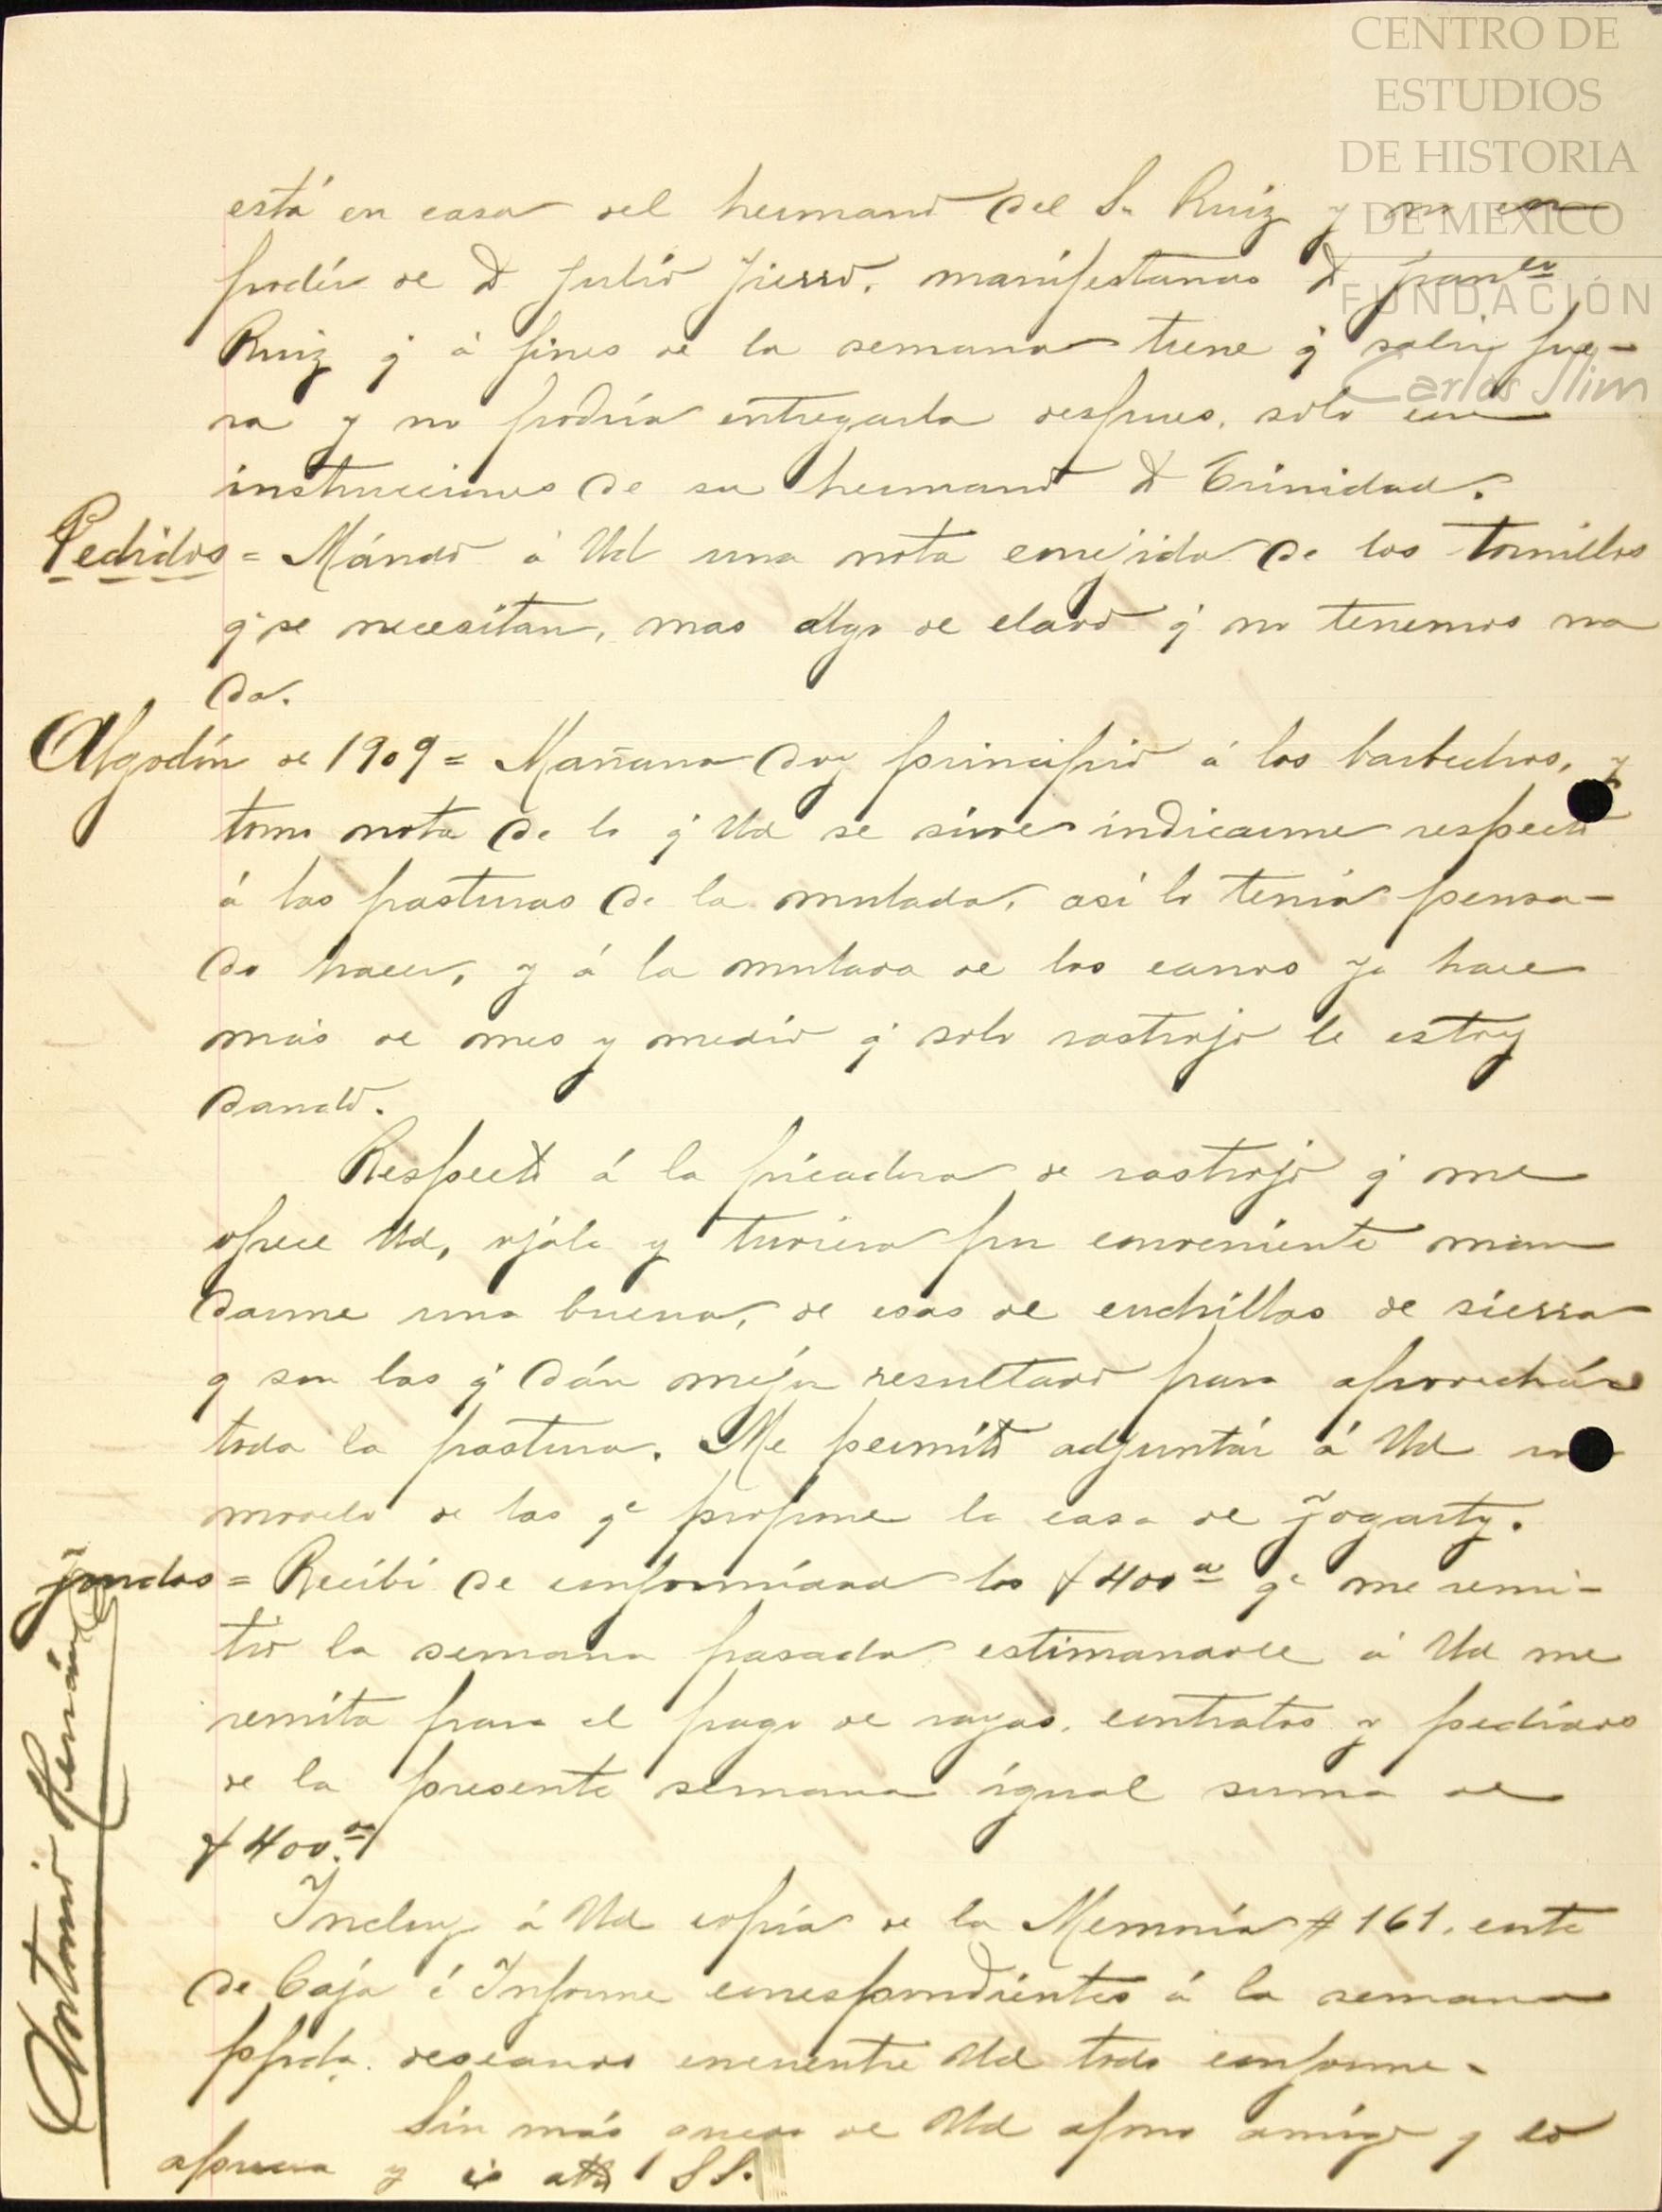 CENTRO DE
ESTUDIOS
DE HISTORIA
DE MEXICO
FUNDACIÓN
Carlos Slim
está en casa del hermano del Sr Ruiz y no en
podér de D Julio Fierro, manifestamos D Franco
Ruiz q á fines de la semana tiene q salir fue-
ra y no podría entregarla despues, solo con
instrucciones de su hermano D Trinidad.
Pedidos = Mándo á Ud una nota correjida de los tornillos
q se necesitan, mas algo de clavo q no tenemos na
da.
Algodón de 1909 = Mañana doy principio á los barbechos, y
tomo nota de lo q Ud se sirve indicarme respecto
á las pasturas de la mulada, así lo tenía pensa-
do hacer, y á la mulada de los carros ya hace
más de mes y medio q solo rastrojo le estoy
dando.
Respecto á la picadora de rastrojo q me
ofrece Ud, ojála y tuviera por conveniente man
darme una buena, de esas de cuchillas de sierra
q son las q dán mejor resultado para aprovechár
toda la pastura. Me permito adjuntár á Ud un
modelo de las qe propone la casa de Fogarty.
Fondos = Recibí de conformidad los $400.00 qe me remi-
tió la semana pasada estimandole á Ud me
remita para el pago de rayas, contratos y pedidos
de la presente semana igual suma de
$400.00
Incluyo á Ud copia de la Memoria #161, corte
de Caja é Informe correspondientes á la semana
ppda. deseando encuentre Ud todo conforme.
Sin más quedo de Ud afmo amigo y lo
aprecia y es atto SS.
Antonio Hernández